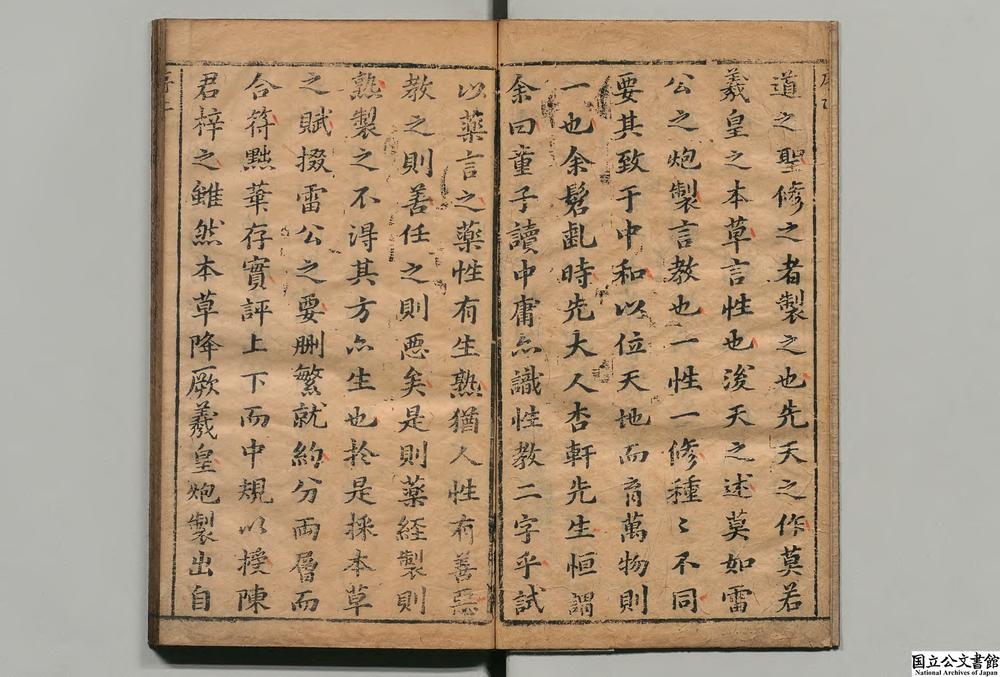 道之聖修之者製之也先天之作莫若
羲皇之本草言性也後天之述莫如雷
公之炮製言教也一性一修種〻不同
要其致于中和以位天地而育萬物則
一也余髫齓時先大人杏軒先生恒謂
余曰童子讀中庸亦識性教二字乎試
以藥言之藥性有生熟猶人性有善惡
教之則善任之則惡矣是則藥経製則
熟製之不得其方亦生也於是採本草
之賦掇雷公之要刪繁就約分両層而
合符黜華存實評上下而中規以授陳
君梓之雖然本草降厥羲皇炮製出自
国立公文書館
National Archives of Japan